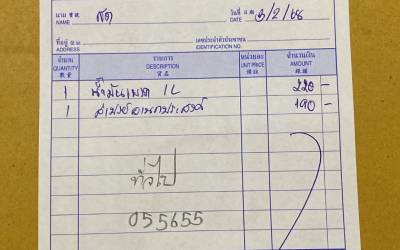 นาม 寶號 NAME สด วันที่ 日期 DATE 3/2/68
ที่อยู่ 住址 ADDRESS เลขประจำตัวประชาชน IDENTIFICATION NO.
จำนวน QUANTITY 數量 รายการ DESCRIPTION 貨名 หน่วยละ UNIT PRICE 價錢 จำนวนเงิน AMOUNT 銀碼
1 น้ำมันเบรค 1L 220 -
1 สเปรย์อเนกประสงค์ 190 -
ทั่วไป
055655